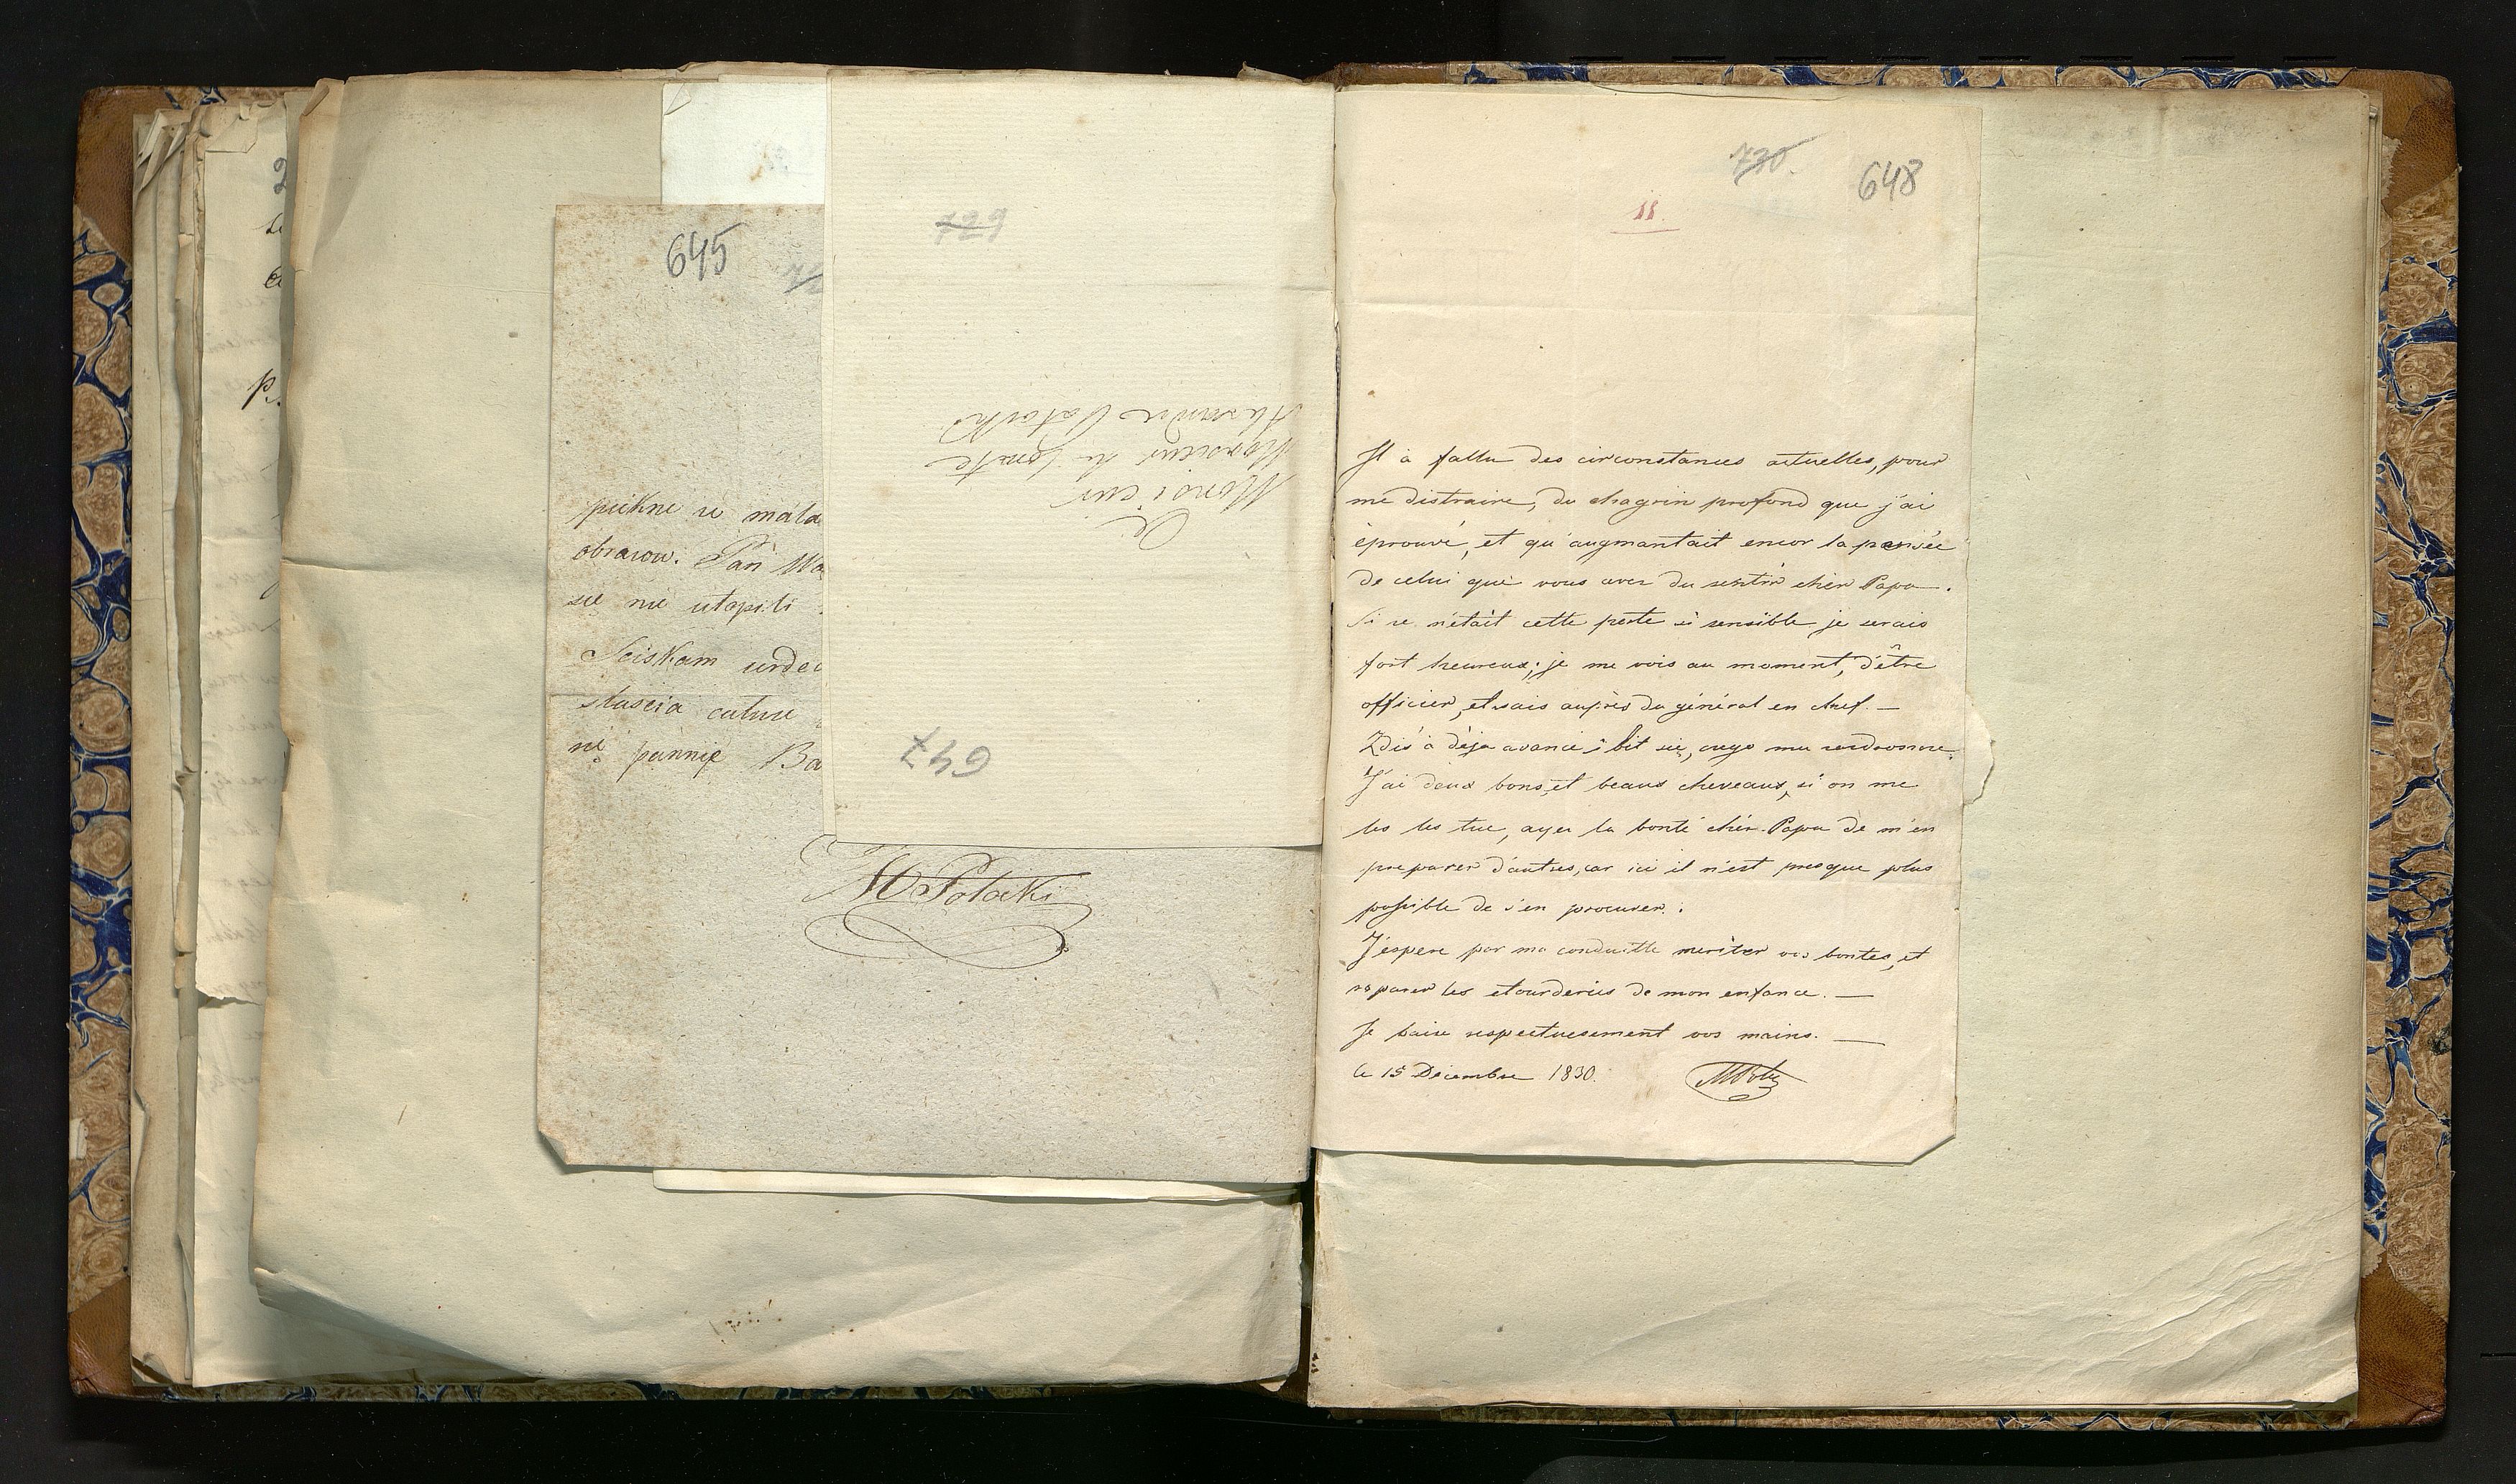 645
piekne ie mala
obrazow. Pan Ma
się nie utopili
Sciskam serdec
ni pannie Ba
MPotocki
729
à
Monsieur
Monsieur le Comte
Alexandre Potocki
647
730.
648
11.
Il à fallu des circonstances actuelles, pour
me distraire, du chagrin profond que j'ai
éprouvé, et qu'augmantait encor la pensée
de celui que vous avez du sentir chèr Papa.
Si ce n'était cette perte si sensible je serais
fort heureux; je me vois au moment, d'être
officier, et sais auprès du général en chef. —
Zdis à déja avancé; bit się,
J'ai deux bons, et beaux cheveaux, si on me
les les tue, ayez la bonté chér Papa de m'en
preparer d'autres, car ici il n'est presque plus
possible de s'en procurer.
J'éspere par ma conduitte meriter vos bontes, et
reparer les etourderies de mon enfance. —
Je baise respectuesement vos mains. —
le 15 Décembre 1830.